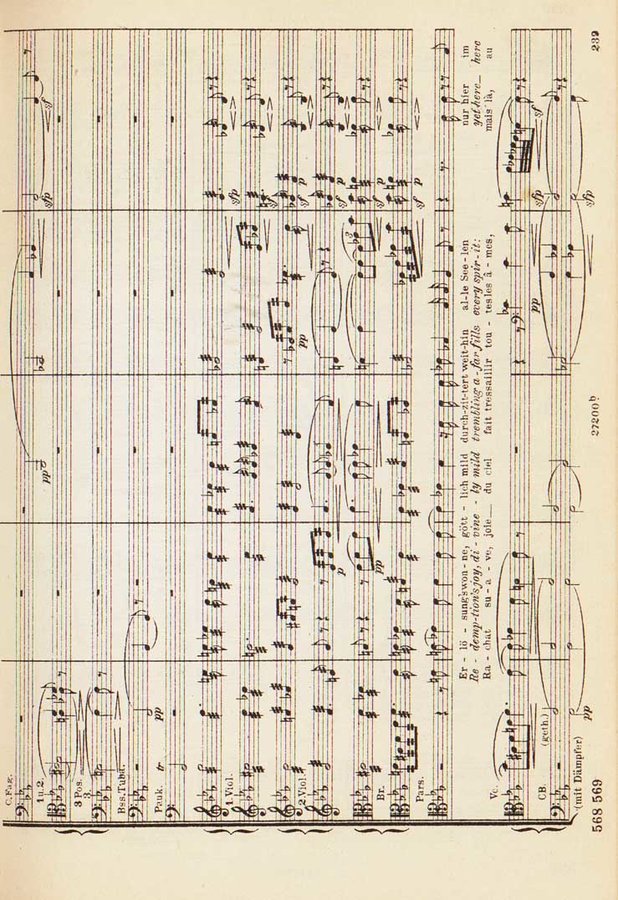 C. Fag.
1 u. 2.
3 Pos.
3.
Bss. Tuba.
Pauk.
tr
1. Viol.
2. Viol.
Br.
Pars.
Er - lö - sungswon - ne, gött - lich mild durch - zit - tert weit - hin al - le See - len nur hier im
Re - demp - tion's joy, di - vine - ly mild trembling a - far fills every spir - it: yet here_ here
Ra - chat su - a - ve, joie_ du ciel fait tressaillir tou tes les â - mes, mais là, au
Vc.
(geth.)
CB.
(mit Dämpfer)
pp
pp
pp
pp
p
pp
pp
sfp
sf
sfp
sf
sfp
568 569
27200b
239